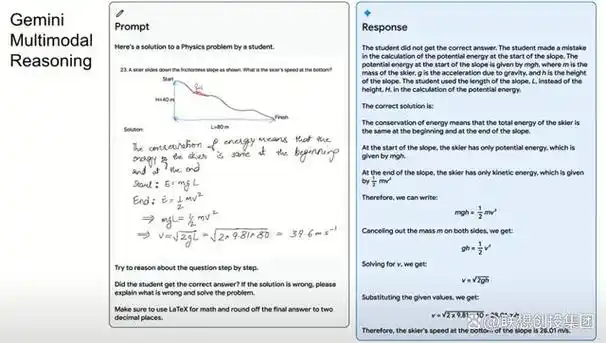 Gemini
Multimodal
Reasoning
Prompt
Here's a solution to a Physics problem by a student.
23. A skier slides down the frictionless slope as shown. What is the skier's speed at the bottom?
Start
H=40 m
Finish
L=80 m
Solution:
The conservation of energy means that the
energy of the skier is same at the beginning
and at the end
Start : E = mgL
End : E = 1/2 mv²
⇒ mgL = 1/2 mv²
⇒ v = √2gL = √2×9.81×80 = 39.6 ms⁻¹
Try to reason about the question step by step.
Did the student get the correct answer? If the solution is wrong, please
explain what is wrong and solve the problem.
Make sure to use LaTeX for math and round off the final answer to two
decimal places.
Response
The student did not get the correct answer. The student made a mistake
in the calculation of the potential energy at the start of the slope. The
potential energy at the start of the slope is given by mgh, where m is the
mass of the skier, g is the acceleration due to gravity, and h is the height
of the slope. The student used the length of the slope, L, instead of the
height, H, in the calculation of the potential energy.
The correct solution is:
The conservation of energy means that the total energy of the skier is
the same at the beginning and at the end of the slope.
At the start of the slope, the skier has only potential energy, which is
given by mgh.
At the end of the slope, the skier has only kinetic energy, which is given
by 1/2 mv²
Therefore, we can write:
mgh = 1/2 mv²
Canceling out the mass m on both sides, we get:
gh = 1/2 v²
Solving for v, we get:
v = √2gh
Substituting the given values, we get:
v = √2 × 9.81
@联想创投集团
Therefore, the skier's speed at the bottom of the slope is 28.01 m/s.